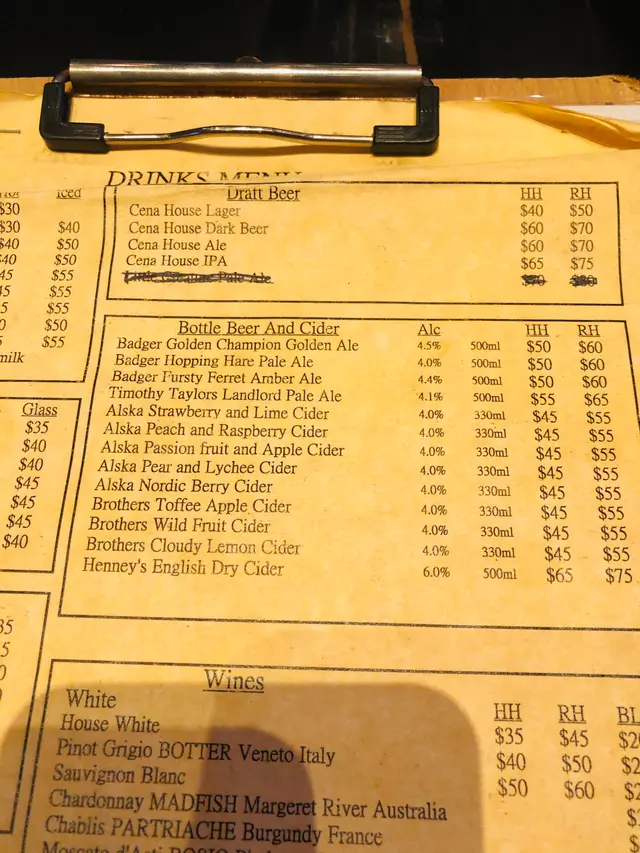 DRINKS MENU
Iced
$30
$30 $40
$40 $50
$40 $50
45 $55
45 $55
5 $55
0 $50
5 $55
milk
Glass
$35
$40
$40
$45
$45
$45
$40
35
5
0
Draft Beer HH RH
Cena House Lager $40 $50
Cena House Dark Beer $60 $70
Cena House Ale $60 $70
Cena House IPA $65 $75
Bottle Beer And Cider Alc HH RH
Badger Golden Champion Golden Ale 4.5% 500ml $50 $60
Badger Hopping Hare Pale Ale 4.0% 500ml $50 $60
Badger Fursty Ferret Amber Ale 4.4% 500ml $50 $60
Timothy Taylors Landlord Pale Ale 4.1% 500ml $55 $65
Alska Strawberry and Lime Cider 4.0% 330ml $45 $55
Alska Peach and Raspberry Cider 4.0% 330ml $45 $55
Alska Passion fruit and Apple Cider 4.0% 330ml $45 $55
Alska Pear and Lychee Cider 4.0% 330ml $45 $55
Alska Nordic Berry Cider 4.0% 330ml $45 $55
Brothers Toffee Apple Cider 4.0% 330ml $45 $55
Brothers Wild Fruit Cider 4.0% 330ml $45 $55
Brothers Cloudy Lemon Cider 4.0% 330ml $45 $55
Henney's English Dry Cider 6.0% 500ml $65 $75
Wines
White HH RH BL
House White $35 $45
Pinot Grigio BOTTER Veneto Italy $40 $50
Sauvignon Blanc $50 $60
Chardonnay MADFISH Margeret River Australia
Chablis PARTRIACHE Burgundy France